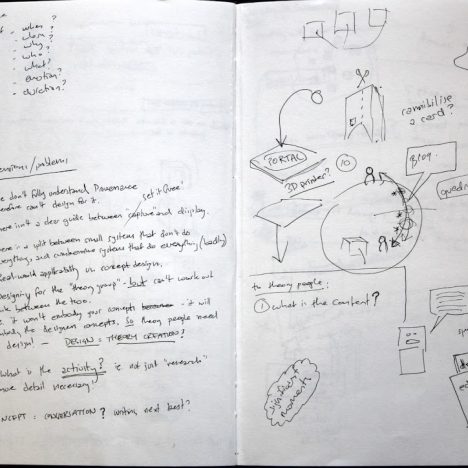 - when?
- where?
- why?
- who?
- what?
- emotion?
- duration?
/problems
don't fully understand Provenance
can't design for it.
"set it free"
isn't a clear guide between capture and display.
is a split between small systems that don't do
everything, and cumbersome systems that do everything (badly)
world applicability vs. concept design.
Designing for the "theory group" - but can't work out
between the two.
it won't embody your concepts - it will
the designers concepts, so theory people need
design! - DESIGN = THEORY CREATION?
What is the activity? ie not just "research"
more detail necessary!
CONCEPT : CONVERSATION? writing next best?
cannibilise
a card?
PORTAL
3D printer?
10
Blog.
to theory people:
① what is the content?
significant
moments